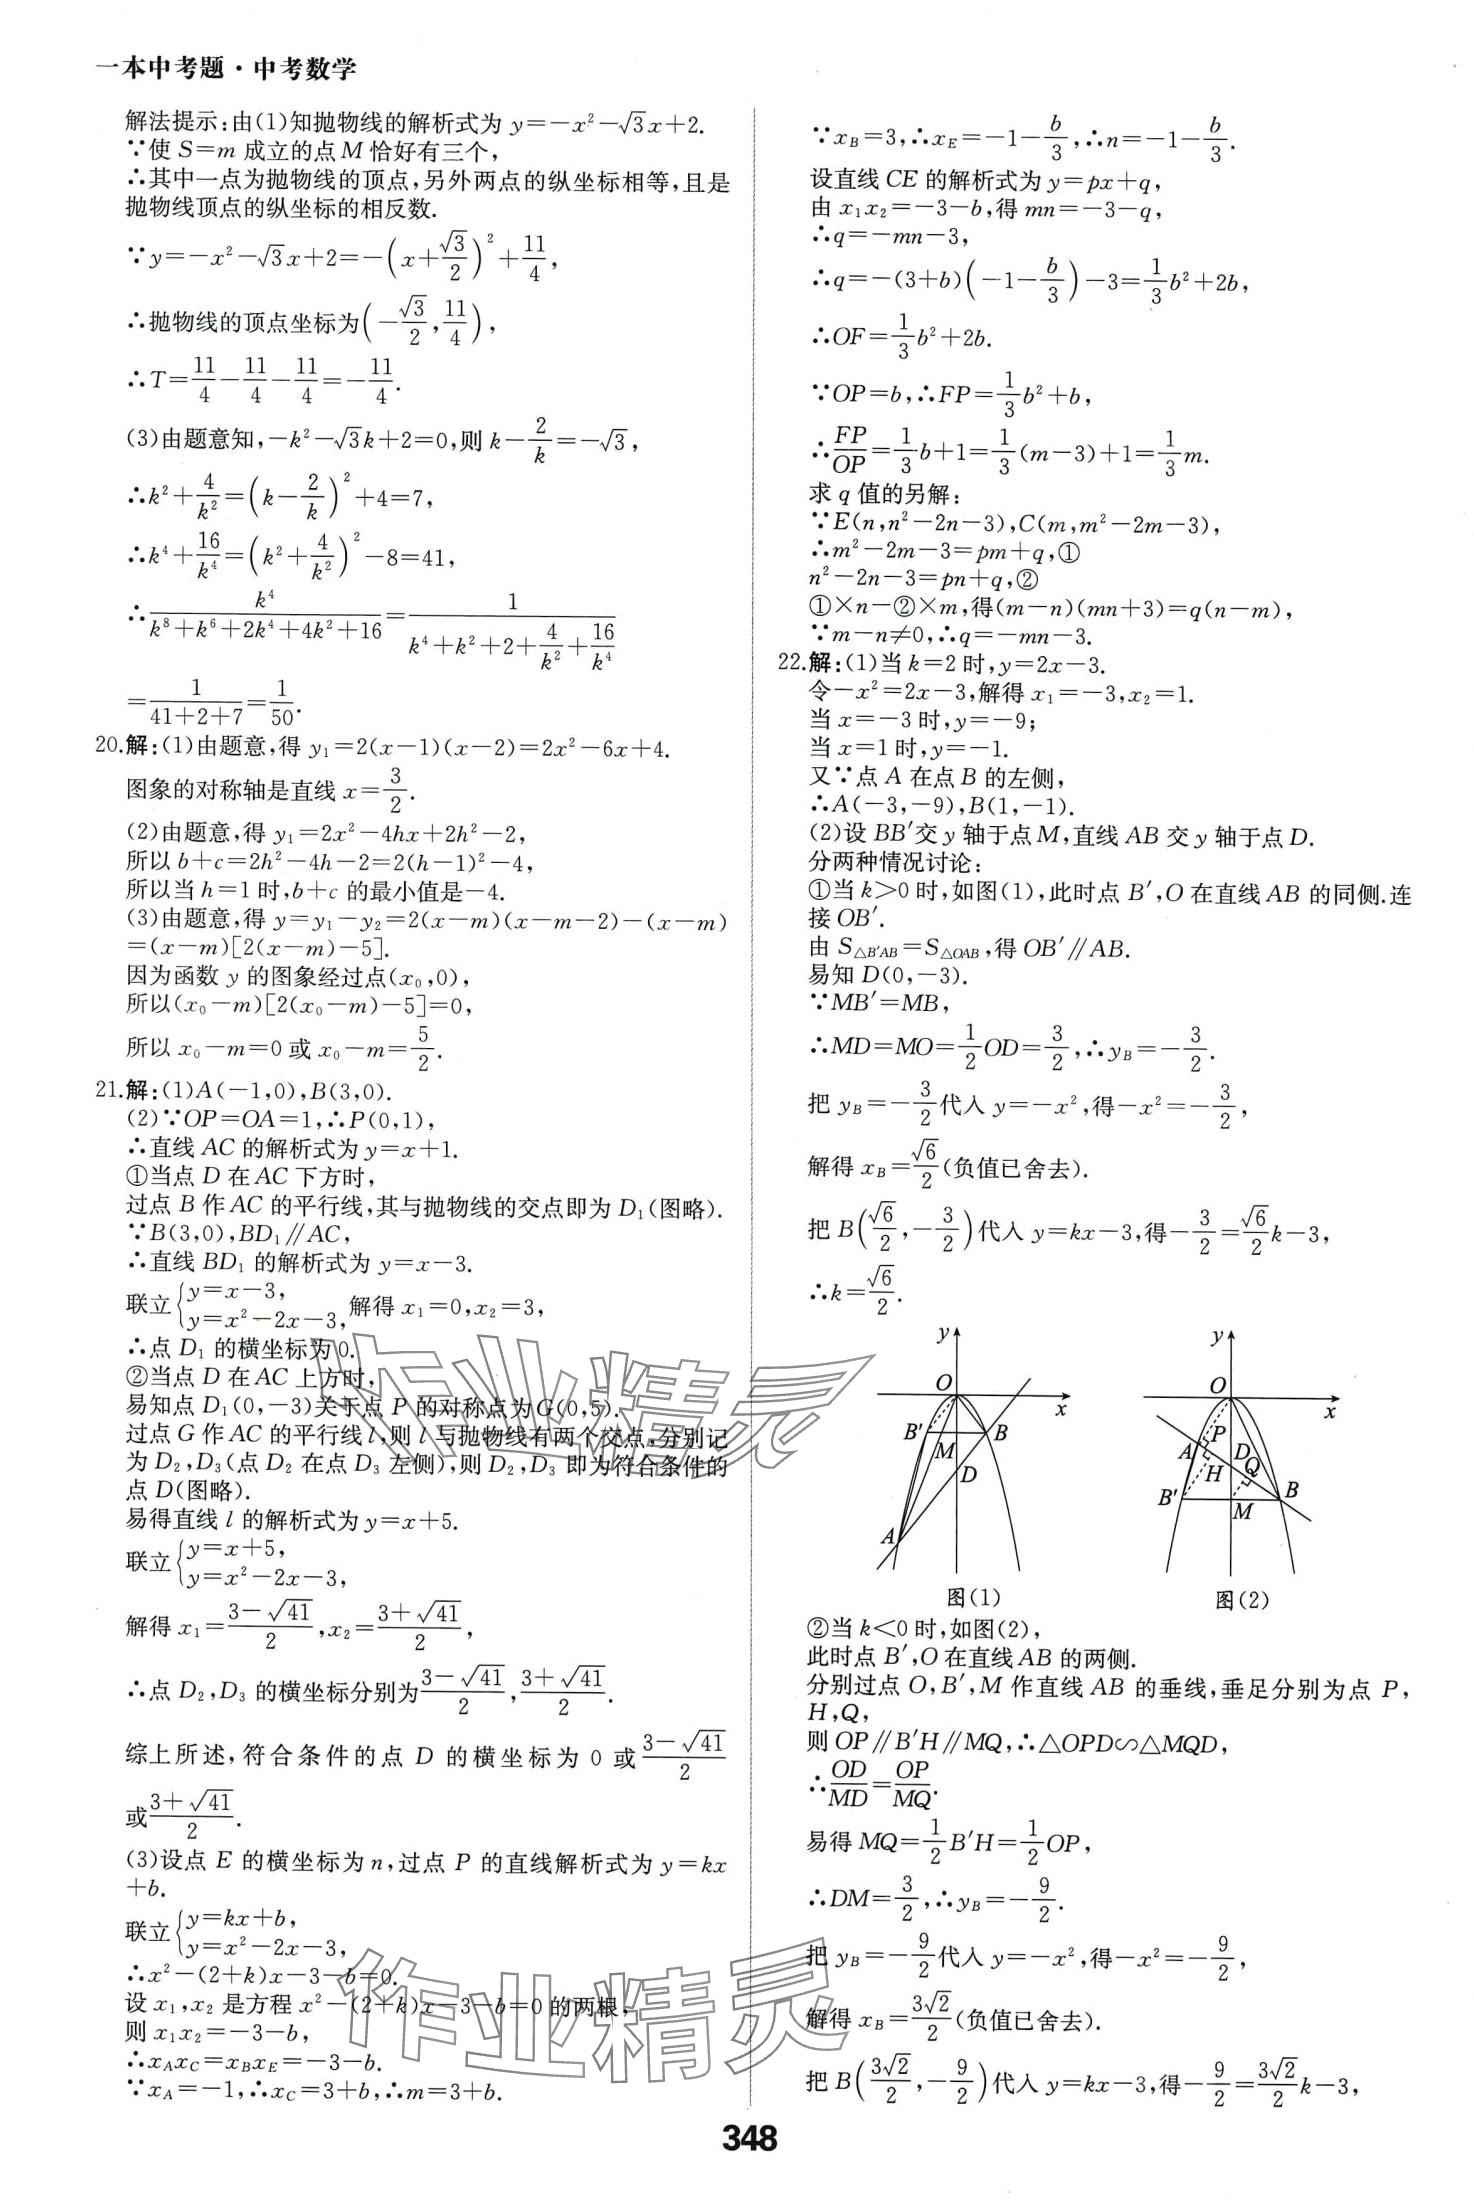 一本中考题·中考数学
解法提示:由(1)知抛物线的解析式为 y=-x²-√3x+2.
∵使 S=m 成立的点 M 恰好有三个,
∴其中一点为抛物线的顶点,另外两点的纵坐标相等,且是
抛物线顶点的纵坐标的相反数.
∵y=-x²-√3x+2=-(x+√3/2)²+11/4,
∴抛物线的顶点坐标为(-√3/2,11/4),
∴T=11/4-11/4-11/4=-11/4.
(3)由题意知,-k²-√3k+2=0,则 k-2/k=-√3,
∴k²+4/k²=(k-2/k)²+4=7,
∴k⁴+16/k⁴=(k²+4/k²)²-8=41,
∴k⁴/(k⁸+k⁶+2k⁴+4k²+16)=1/(k⁴+k²+2+4/k²+16/k⁴)
=1/(41+2+7)=1/50.
20.解:(1)由题意,得 y₁=2(x-1)(x-2)=2x²-6x+4.
图象的对称轴是直线 x=3/2.
(2)由题意,得 y₁=2x²-4hx+2h²-2,
所以 b+c=2h²-4h-2=2(h-1)²-4,
所以当 h=1 时,b+c 的最小值是-4.
(3)由题意,得 y=y₁-y₂=2(x-m)(x-m-2)-(x-m)
=(x-m)[2(x-m)-5].
因为函数 y 的图象经过点(x₀,0),
所以(x₀-m)[2(x₀-m)-5]=0,
所以 x₀-m=0 或 x₀-m=5/2.
21.解:(1)A(-1,0),B(3,0).
(2)∵OP=OA=1,∴P(0,1),
∴直线 AC 的解析式为 y=x+1.
①当点 D 在 AC 下方时,
过点 B 作 AC 的平行线,其与抛物线的交点即为 D₁(图略).
∵B(3,0),BD₁∥AC,
∴直线 BD₁ 的解析式为 y=x-3.
联立{y=x-3, y=x²-2x-3, 解得 x₁=0,x₂=3,
∴点 D₁ 的横坐标为 0.
②当点 D 在 AC 上方时,
易知点 D₁(0,-3)关于点 P 的对称点为 G(0,5).
过点 G 作 AC 的平行线 l,则 l 与抛物线有两个交点,分别记
为 D₂,D₃(点 D₂ 在点 D₃ 左侧),则 D₂,D₃ 即为符合条件的
点 D(图略).
易得直线 l 的解析式为 y=x+5.
联立{y=x+5, y=x²-2x-3,
解得 x₁=(3-√41)/2,x₂=(3+√41)/2,
∴点 D₂,D₃ 的横坐标分别为(3-√41)/2,(3+√41)/2.
综上所述,符合条件的点 D 的横坐标为 0 或(3-√41)/2
或(3+√41)/2.
(3)设点 E 的横坐标为 n,过点 P 的直线解析式为 y=kx
+b.
联立{y=kx+b, y=x²-2x-3,
∴x²-(2+k)x-3-b=0.
设 x₁,x₂ 是方程 x²-(2+k)x-3-b=0 的两根,
则 x₁x₂=-3-b,
∴x_Ax_C=x_Bx_E=-3-b.
∵x_A=-1,∴x_C=3+b,∴m=3+b.
∵x_B=3,∴x_E=-1-b/3,∴n=-1-b/3.
设直线 CE 的解析式为 y=px+q,
由 x₁x₂=-3-b,得 mn=-3-q,
∴q=-mn-3,
∴q=-(3+b)(-1-b/3)-3=1/3b²+2b,
∴OF=1/3b²+2b.
∵OP=b,∴FP=1/3b²+b,
∴FP/OP=1/3b+1=1/3(m-3)+1=1/3m.
求 q 值的另解:
∵E(n,n²-2n-3),C(m,m²-2m-3),
∴m²-2m-3=pm+q,①
n²-2n-3=pn+q,②
①×n-②×m,得(m-n)(mn+3)=q(n-m),
∵m-n≠0,∴q=-mn-3.
22.解:(1)当 k=2 时,y=2x-3.
令-x²=2x-3,解得 x₁=-3,x₂=1.
当 x=-3 时,y=-9;
当 x=1 时,y=-1.
又∵点 A 在点 B 的左侧,
∴A(-3,-9),B(1,-1).
(2)设 BB′交 y 轴于点 M,直线 AB 交 y 轴于点 D.
分两种情况讨论:
①当 k>0 时,如图(1),此时点 B′,O 在直线 AB 的同侧.连
接 OB′.
由 S△B′AB=S△OAB,得 OB′∥AB.
易知 D(0,-3).
∵MB′=MB,
∴MD=MO=1/2OD=3/2,∴y_B=-3/2.
把 y_B=-3/2代入 y=-x²,得-x²=-3/2,
解得 x_B=√6/2(负值已舍去).
把 B(√6/2,-3/2)代入 y=kx-3,得-3/2=√6/2k-3,
∴k=√6/2.
y O x B′ M B D A
图(1)
y O x A P D H Q B′ M B
图(2)
②当 k<0 时,如图(2),
此时点 B′,O 在直线 AB 的两侧.
分别过点 O,B′,M 作直线 AB 的垂线,垂足分别为点 P,
H,Q,
则 OP∥B′H∥MQ,∴△OPD∽△MQD,
∴OD/MD=OP/MQ.
易得 MQ=1/2B′H=1/2OP,
∴DM=3/2,∴y_B=-9/2.
把 y_B=-9/2代入 y=-x²,得-x²=-9/2,
解得 x_B=3√2/2(负值已舍去).
把 B(3√2/2,-9/2)代入 y=kx-3,得-9/2=3√2/2k-3,
348
作业精灵
作业精灵